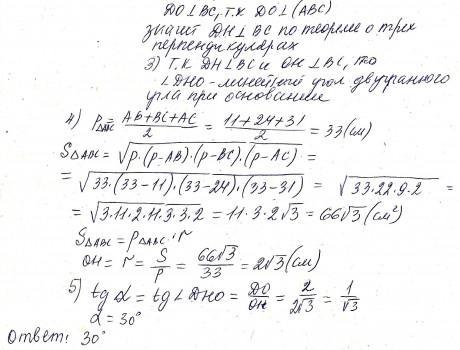 DO⊥BC, т.к DO⊥(ABC)
значит DH⊥BC по теореме о трех
перпендикулярах
3) т.к DH⊥BC и OH⊥BC, то
∠DHO - линейный угол двугранного
угла при основании
4) P△ABC = (AB+BC+AC)/2 = (11+24+31)/2 = 33(см)
S△ABC = √(p·(p-AB)·(p-BC)·(p-AC)) =
= √(33·(33-11)·(33-24)·(33-31)) = √(33·22·9·2) =
= √(3·11·2·11·3·3·2) = 11·3·2√3 = 66√3 (см²)
S△ABC = P△ABC·r
OH = r = S/P = 66√3/33 = 2√3 (см)
5) tg α = tg∠DHO = DO/OH = 2/2√3 = 1/√3
α = 30°
Ответ: 30°